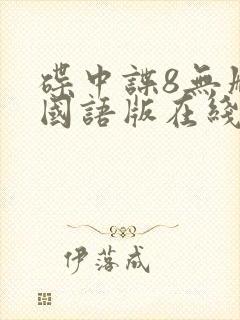 碟中諜8無
國語版在綫
伊落成